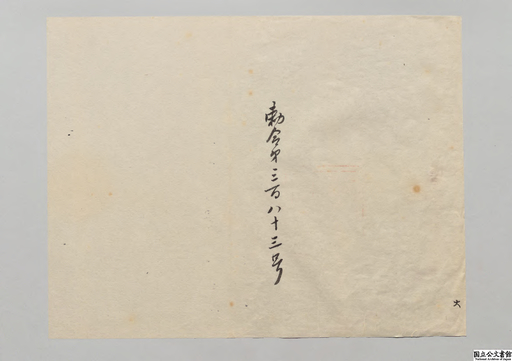 勅令第三百八十三号
大
国立公文書館
National Archives of Japan